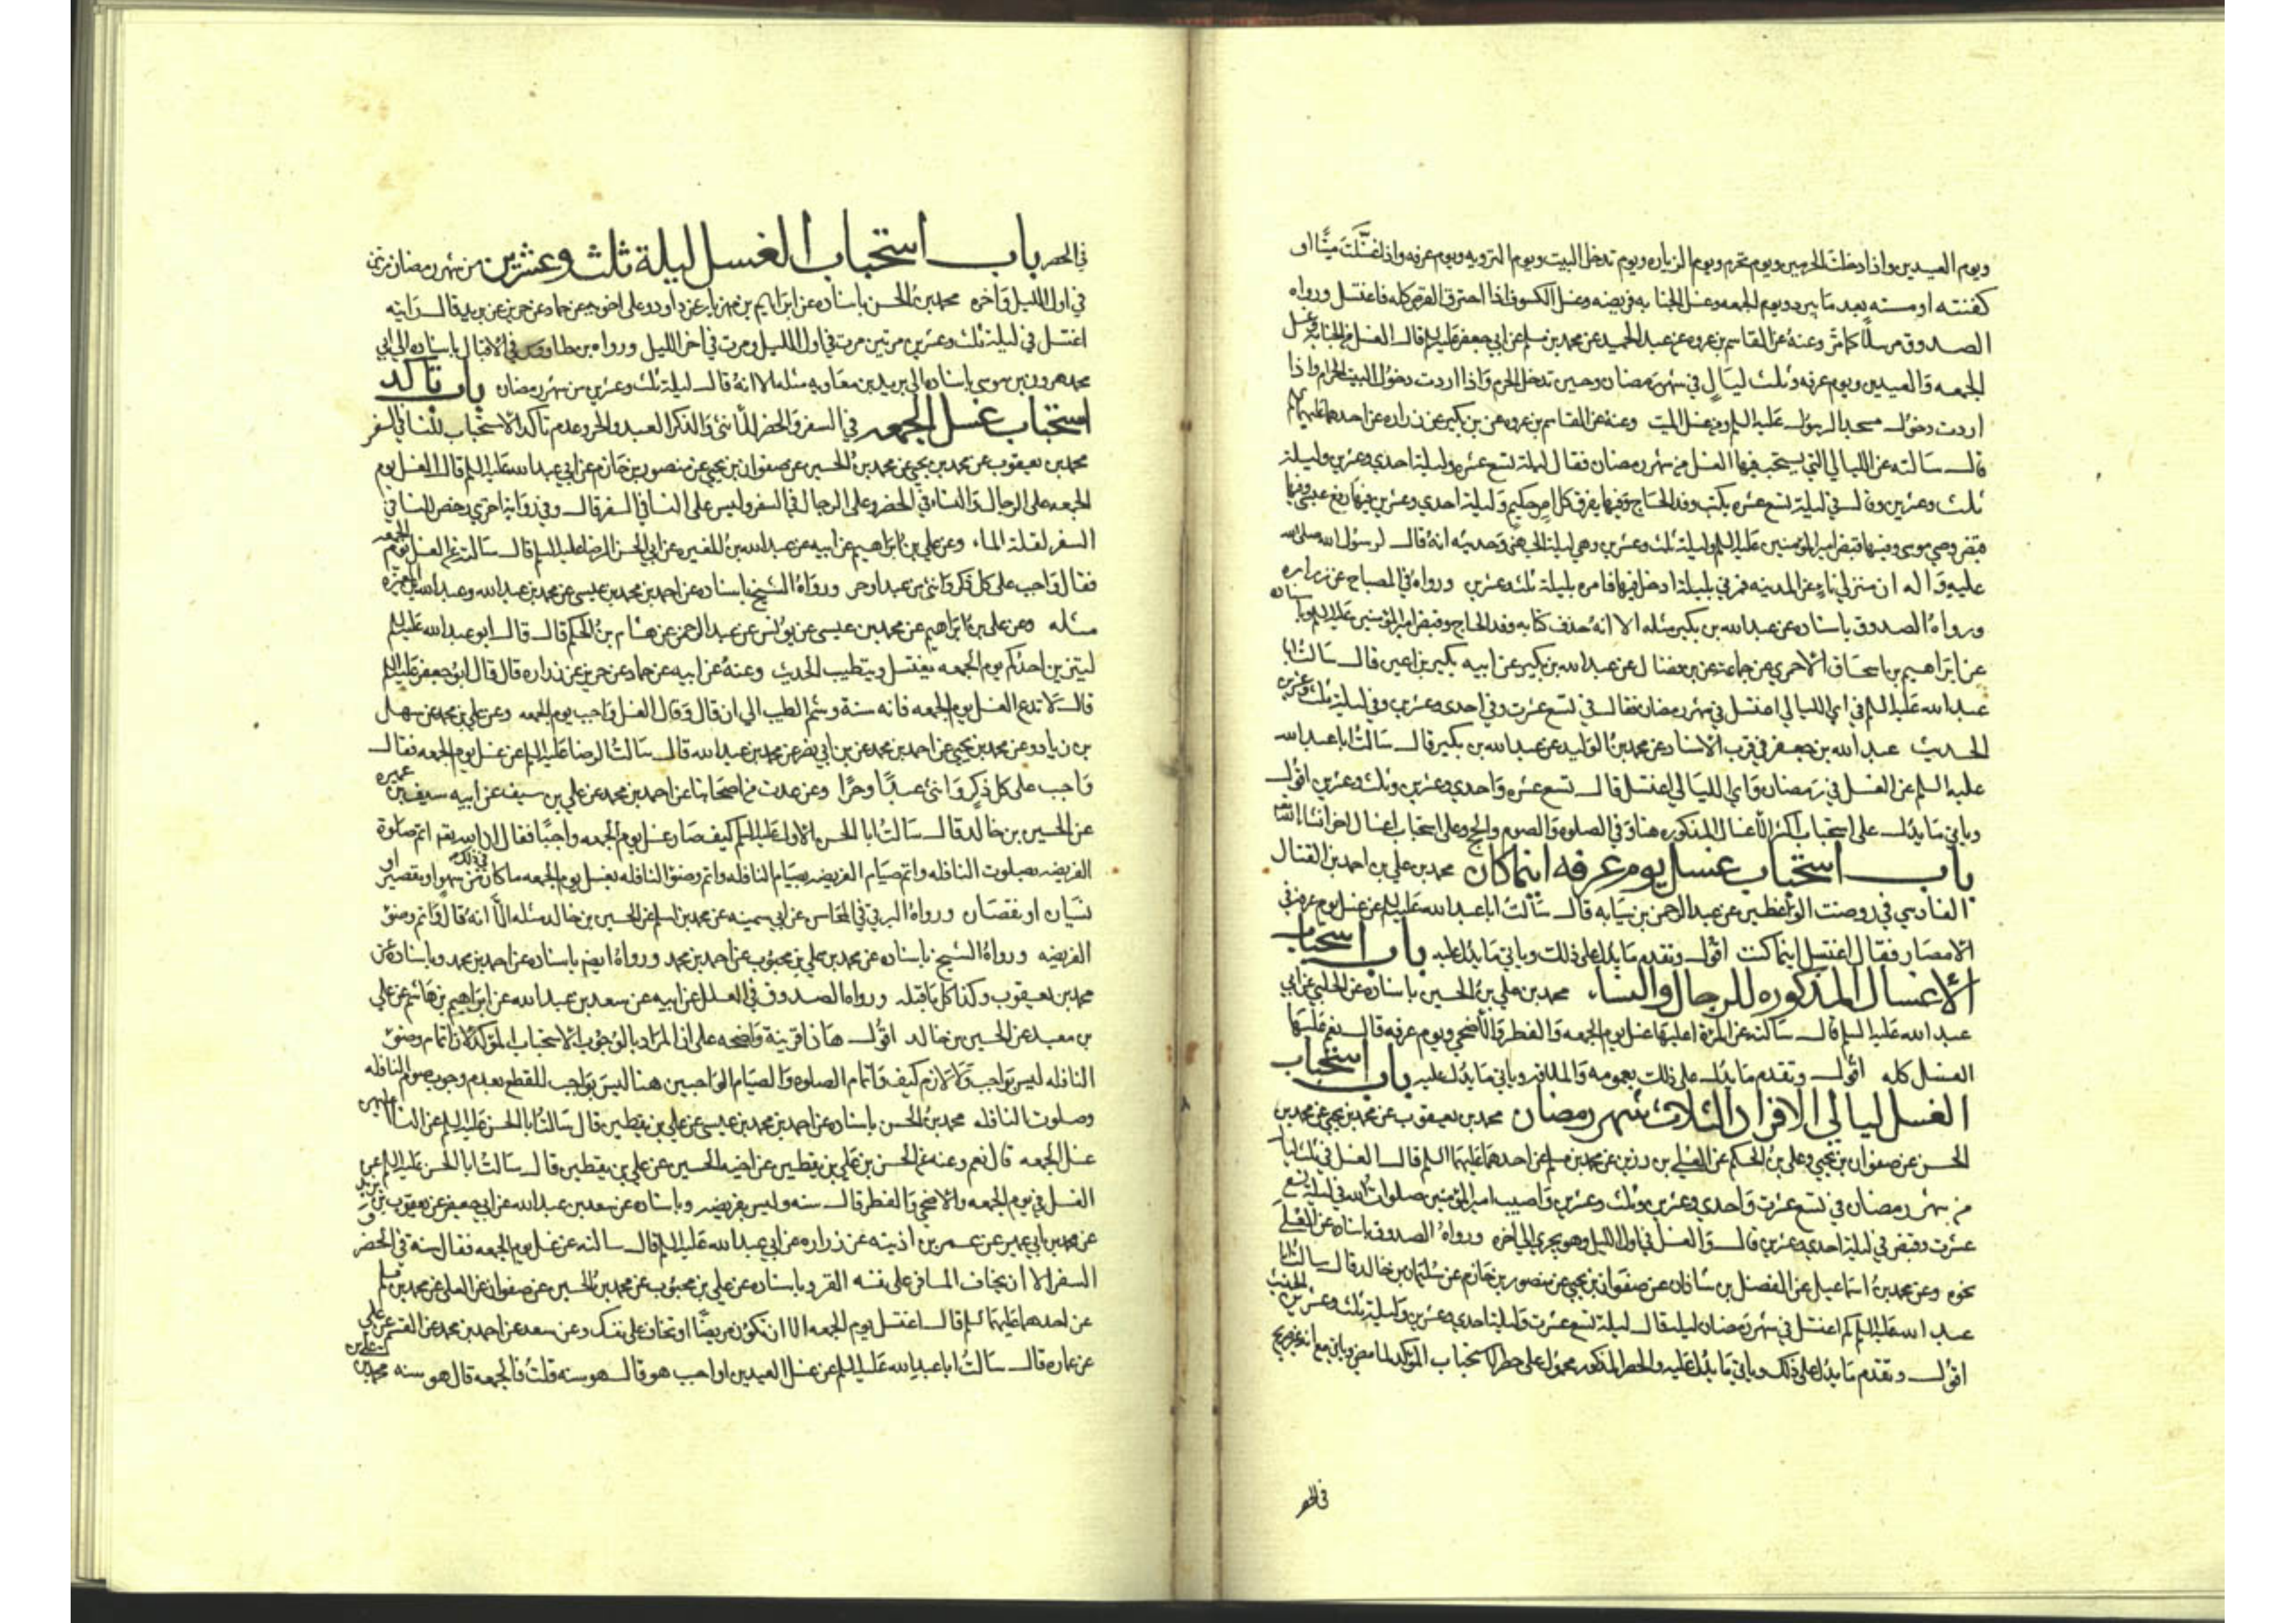 ويوم العيدين واذا دخلت الحرمين ويوم تحرم ويوم الزياره ويوم تدخل البيت ويوم الترويه ويوم عرفه واذا غسّلت ميّتًا او
كفنته او مسته بعد ما يبرد ويوم الجمعه وغسل الجنابه فريضه وغسل الكسوف اذا احترق القرص كله فاغتسل ورواه
الصدوق مرسلًا كما مرّ وعنه عن القاسم بن عروه عن عبد الحميد عن محمد بن مسلم عن ابي جعفر عليه السلم قال الغسل من الجنابة وغسل
الجمعه والعيدين ويوم عرفه وثلث ليال في شهر رمضان وحين تدخل الحرم واذا اردت دخول البيت الحرام واذا
اردت دخول مسجد الرسول عليه السلم ومن غسل الميت وعنه عن القاسم بن عروه عن بن بكير عن زراره عن احدهما عليهما السلم
قال سالته عن الليالي التي يستحب فيها الغسل من شهر رمضان فقال ليلة تسع عشره وليلة احدي وعشرين وليلة
ثلث وعشرين وقال في ليلة تسع عشره يكتب وفد الحاج وفيها يفرق كل امر حكيم وليلة احدي وعشرين فيها رفع عيسى وفيها
قبض وصي موسى وفيها قبض امير المؤمنين عليه السلم وليلة ثلث وعشرين وهي ليلة الجهني وحديثه انه قال لرسول الله صلى الله
عليه واله ان منزلي ناء عن المدينه فمرني بليلة ادخل فيها فامره بليلة ثلث وعشرين ورواه في المصباح عن زراره
ورواه الصدوق باسناده عن عبد الله بن بكير مثله الا انه حذف كتابه وفد الحاج وقبض امير المؤمنين عليه السلم وباسناده
عن ابراهيم بن اسحاق الاحمري عن جماعة عن بن فضال عن عبد الله بن بكير عن ابيه بكير بن اعين قال سالت ابا
عبد الله عليه السلم في اي الليالي اغتسل في شهر رمضان فقال في تسع عشرت وفي احدي وعشرين وفي ليلة ثلث وعشرين
الحديث عبد الله بن جعفر في قرب الاسناد عن محمد بن الوليد عن عبد الله بن بكير قال سالت ابا عبد الله
عليه السلم عن الغسل في رمضان واي الليالي اغتسل قال تسع عشره واحدي وعشرين وثلث وعشرين اقول
وياتي ما يدل على استحباب اكثر الاغسال المذكوره هنا وفي الصلوه والصوم والحج وعلى استحباب اغسال اخر انشا الله
باب استحباب غسل يوم عرفه اينما كان محمد بن علي بن احمد بن الفتال
الفارسي في روضت الواعظين عن عبد الرحمن بن سيابه قال سألت ابا عبد الله عليه السلم عن غسل يوم عرفه في
الامصار فقال اغتسل اينما كنت اقول وتقدم ما يدل على ذلك وياتي ما يدل عليه باب استحباب
الاغسال المذكوره للرجال والنساء محمد بن علي بن الحسين باسناده عن الحلبي عن ابي
عبد الله عليه السلم قال سالته عن المرة اعليها غسل يوم الجمعه والفطر والاضحي ويوم عرفه قال نعم عليها
الغسل كله اقول وتقدم ما يدل على ذلك بعمومه والملاقه وياتي ما يدل عليه باب استحباب
الغسل ليالي الافراد الثلاث شهر رمضان محمد بن يعقوب عن محمد بن يحيى عن محمد بن
الحسن عن صفوان بن يحيي وعلي بن الحكم عن العلى بن رزين عن محمد بن مسلم عن احدهما عليهما السلم قال الغسل في ثلث ليال
من شهر رمضان في تسع عشرت واحدي وعشرين وثلث وعشرين واصيب امير المؤمنين صلوات الله في ليلة تسع
عشرت وقبض في ليلة احدي وعشرين قال والغسل في اول الليل وهو يجزي الى اخره ورواه الصدوق باسناده عن العلى
نحوه وعن محمد بن اسماعيل عن الفضل بن شاذان عن صفوان بن يحيى عن منصور بن حازم عن سليمان بن خالد قال سالت ابا
عبد الله عليه السلم كم اغتسل في شهر رمضان ليله قال ليلة تسع عشرت وليلة احدي وعشرين وليلة ثلث وعشرين الحديث
اقول وتقدم ما يدل على ذلك وياتي ما يدل عليه والحصر المذكور محمول على حصر الاستحباب المؤكد لما مضى وياتي مع انه غير صريح
في الحصر
في الحصر باب استحباب الغسل ليلة ثلث وعشرين من شهر رمضان مرتين
في اول الليل واخره محمد بن الحسن باسناده عن ابراهيم بن مهزيار عن داوود على اخوته عن حماد عن حريز عن بريد قال رايته
اغتسل في ليلة ثلث وعشرين مرتين مرت في اول الليل ومرت في اخر الليل ورواه بن طاووس في الاقبال باسناده الى ابي
محمد هرون بن موسى باسناده الى بريد بن معاويه مثله الا انه قال ليلة ثلث وعشرين من شهر رمضان باب تأكد
استحباب غسل الجمعه في السفر والحضر للأنثى والذكر العبد والحر وعدم تاكد الاستحباب للنسا في السفر
محمد بن يعقوب عن محمد بن يحيي عن محمد بن الحسين عن صفوان بن يحيي عن منصور بن حازم عن ابي عبد الله عليه السلم قال الغسل يوم
الجمعه على الرجال والنساء في الحضر وعلى الرجال في السفر وليس على النسا في السفر قال وفي رواية اخرى رخص للنسا في
السفر لقلة الماء وعن علي بن ابراهيم عن ابيه عن عبد الله بن المغيره عن ابي الحسن الرضا عليه السلم قال سالته عن الغسل يوم الجمعه
فقال واجب على كل ذكر وانثى من عبد او حر ورواه الشيخ باسناده عن احمد بن محمد بن عيسى عن محمد بن عبد الله وعبد الله بن المغيره
مثله وعن علي بن ابراهيم عن محمد بن عيسى عن يونس عن عبد الرحمن عن هشام بن الحكم قال قال ابو عبد الله عليه السلم
ليتزين احدكم يوم الجمعه يغتسل ويتطيب الحديث وعنه عن ابيه عن حماد عن حريز عن زراره قال قال ابو جعفر عليه السلم
قال لا تدع الغسل يوم الجمعه فانه سنة وشم الطيب الى ان قال وقال الغسل واجب يوم الجمعه وعن علي بن محمد عن سهل
بن زياد وعن محمد بن يحيي عن احمد بن محمد عن بن ابي نصر عن محمد بن عبد الله قال سالت الرضا عليه السلم عن غسل يوم الجمعه فقال
واجب على كل ذكر وانثى عبدًا وحرًا وعن عدت من اصحابنا عن احمد بن محمد عن علي بن سيف عن ابيه سيف بن عميره
عن الحسين بن خالد قال سالت ابا الحسن الاول عليه السلم كيف صار غسل يوم الجمعه واجبًا فقال ان الله يقم اتم صلوة
الفريضه بصلوت النافله واتم صيام الفريضه بصيام النافله واتم وضؤ النافله بغسل يوم الجمعه ما كان في ذلك من سهو او تقصير او
نسيان او نقصان ورواه البرقي في المحاسن عن ابي سمينه عن محمد بن اسلم عن الحسين بن خالد مثله الا انه قال واتم وضؤ
الفريضه ورواه الشيخ باسناده عن محمد بن علي بن محبوب عن احمد بن محمد ورواه ايضم باسناده عن احمد بن محمد وباسناده عن
محمد بن يعقوب وكذا كل ما قبله ورواه الصدوق في العلل عن ابيه عن سعد بن عبد الله عن ابراهيم بن هاشم عن علي
بن معبد عن الحسين بن خالد اقول هاذا قرينة واضحه على ان المراد بالوجوب الاستحباب المؤكد لان اتمام وضؤ
النافله ليس بواجب ولا لازم كيف واتمام الصلوه والصيام الواجبين هنا ليس بواجب للقطع بعدم وجوب صوم النافله
وصلوت النافله محمد بن الحسن باسناده عن احمد بن محمد بن عيسى عن علي بن يقطين قال سالت ابا الحسن عليه السلم عن النسا اعليهن
غسل الجمعه قال نعم وعنه عن الحسن بن علي بن يقطين عن اخيه الحسين عن علي بن يقطين قال سالت ابا الحسن عليه السلم عن
الغسل في يوم الجمعه والاضحي والفطر قال سنه وليس بفريضه وباسناده عن سعد بن عبد الله عن ابي جعفر عن يعقوب بن يزيد
عن محمد بن ابي عمير عن عمر بن اذينه عن زراره عن ابي عبد الله عليه السلم قال سالته عن غسل يوم الجمعه فقال سنه في الحضر و
السفر الا ان يخاف المسافر على نفسه القر وباسناده عن علي بن محبوب عن محمد بن الحسين عن صفوان عن العلى عن محمد بن مسلم
عن احدهما عليهما السلم قال اغتسل يوم الجمعه الا ان تكون مريضًا او تخاف على نفسك وعن سعد عن احمد بن محمد عن القسم عن علي
عن عماره قال سالت ابا عبد الله عليه السلم عن غسل العيدين اواجب هو قال هو سنه قلت فالجمعه قال هو سنه محمد بن